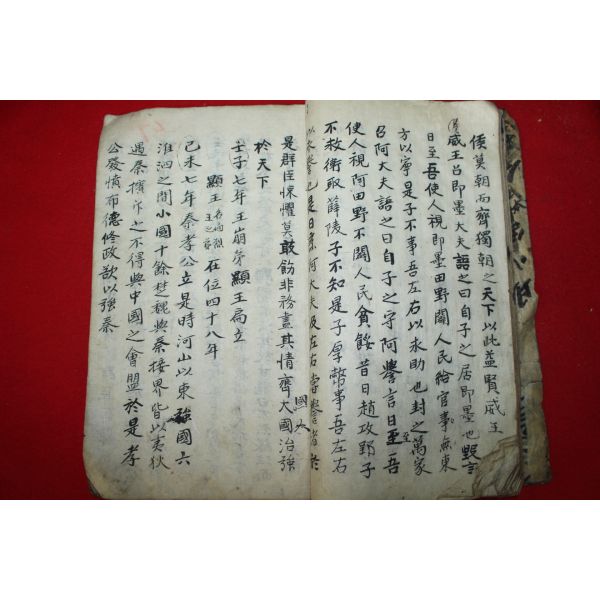 侯莫朝而齊獨朝之天下以此益賢威王
威王召即墨大夫語之曰自子之居即墨也毁言
日至吾使人視即墨田野闢人民給官事無東
方以寧是子不事吾左右以求助也封之萬家
召阿大夫語之曰自子之守阿譽言日至吾
使人視阿田野不闢人民貧餒昔日趙攻鄄子
不救衛取薛陵子不知是子厚幣事吾左右
以求譽也是日烹阿大夫及左右嘗譽者於
是群臣悚懼莫敢飾非務盡其情齊國大治強
於天下
壬子七年王崩弟顯王扁立
顯王 在位四十八年
己未七年秦孝公立是時河山以東強國六
淮泗之間小國十餘楚魏與秦接界皆以夷狄
遇秦擯斥之不得與中國之會盟於是孝
公發憤布德修政欲以強秦